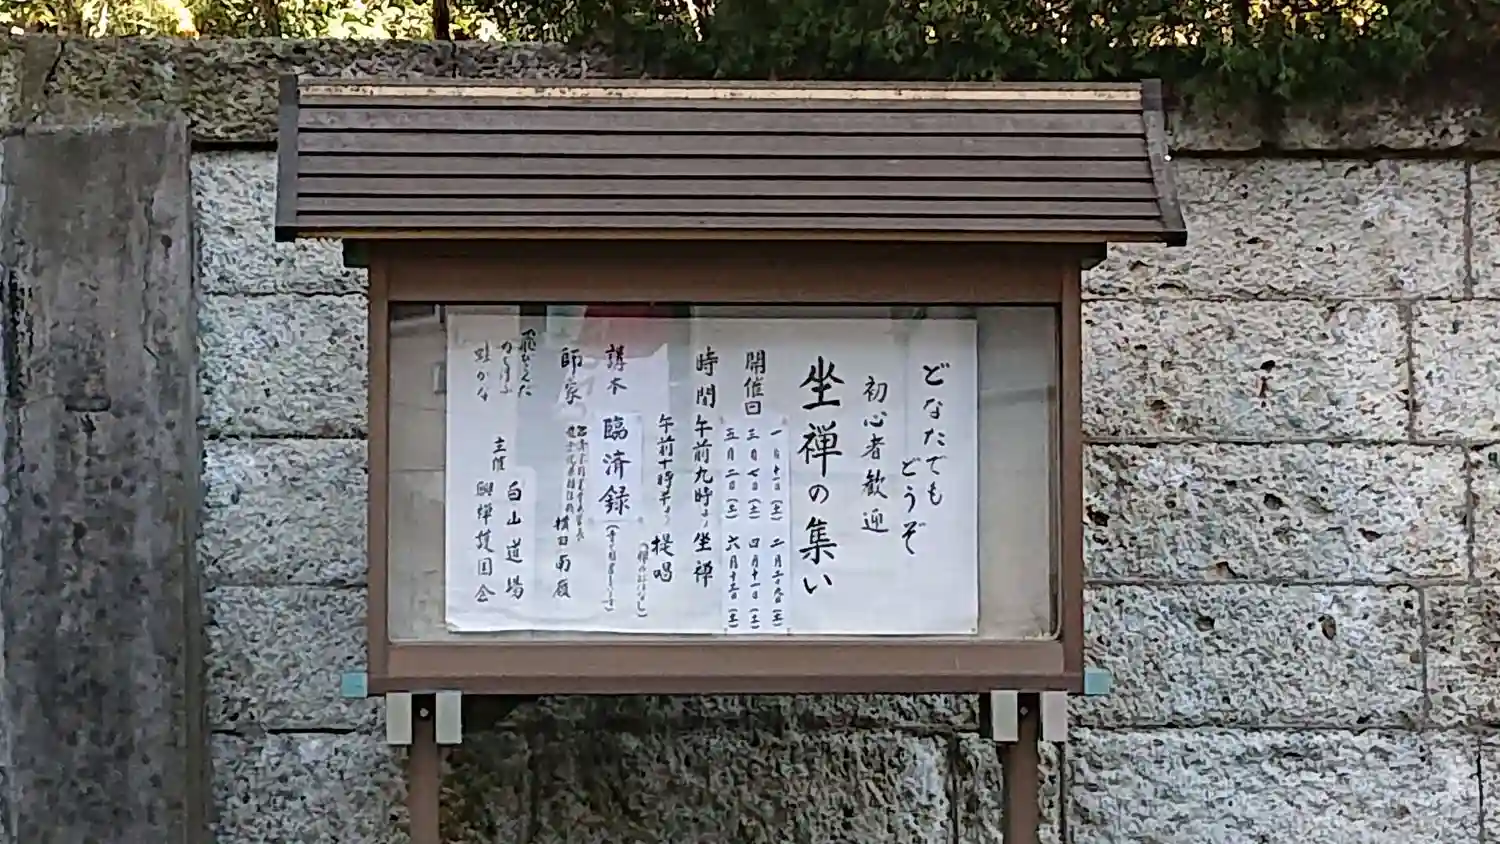 どなたでも
どうぞ
初心者歓迎
坐禅の集い
開催日
一月十一日(土) 二月二十九日(土)
三月七日(土) 四月十一日(土)
五月二日(土) 六月十三日(土)
時間 午前九時より 坐禅
午前十時半より 提唱
講本 臨済録
師家
横田南嶺
主催 白山道場
興禅護国会